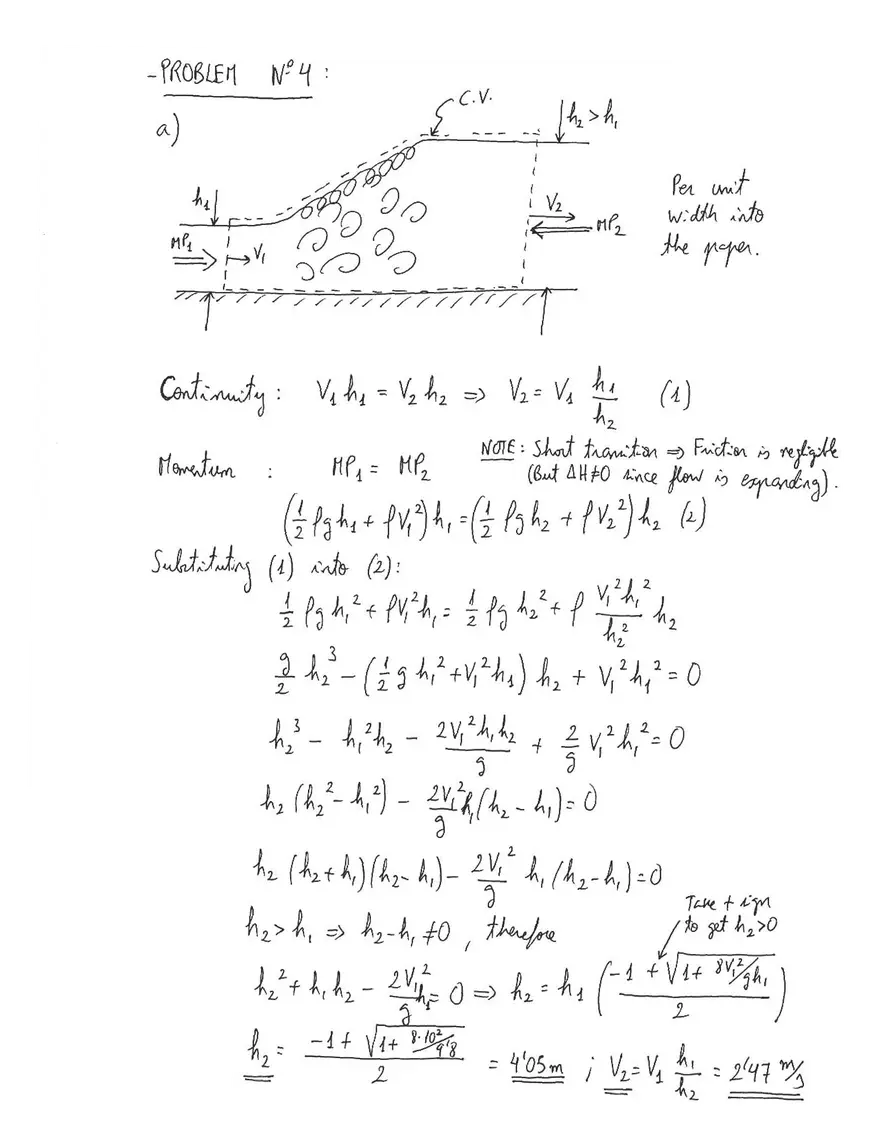 - PROBLEM Nº 4 :
a)
C.V.
h₂ > h₁
h₁
MP₁
V₁
V₂
MP₂
Per unit
width into
the paper.
Continuity : V₁ h₁ = V₂ h₂ ⇒ V₂ = V₁ h₁/h₂ (1)
NOTE : Short transition ⇒ Friction is negligible
(But ΔH≠0 since flow is expanding).
Momentum : MP₁ = MP₂
(1/2 ρgh₁ + ρV₁²) h₁ = (1/2 ρgh₂ + ρV₂²) h₂ (2)
Substituting (1) into (2):
1/2 ρg h₁² + ρV₁²h₁ = 1/2 ρg h₂² + ρ V₁²h₁²/h₂² h₂
g/2 h₂³ - (1/2 g h₁² + V₁²h₁) h₂ + V₁²h₁² = 0
h₂³ - h₁²h₂ - 2V₁²h₁h₂/g + 2/g V₁²h₁² = 0
h₂ (h₂² - h₁²) - 2V₁²/g h₁ (h₂ - h₁) = 0
h₂ (h₂ + h₁)(h₂ - h₁) - 2V₁²/g h₁ (h₂ - h₁) = 0
Take + sign
to get h₂>0
h₂ > h₁ ⇒ h₂ - h₁ ≠ 0 , therefore
h₂² + h₁h₂ - 2V₁²/g h₁ = 0 ⇒ h₂ = h₁ ( (-1 + √(1 + 8V₁²/gh₁))/2 )
h₂ = (-1 + √(1 + 8·10²/9'8))/2 = 4'05 m ; V₂ = V₁ h₁/h₂ = 2'47 m/s